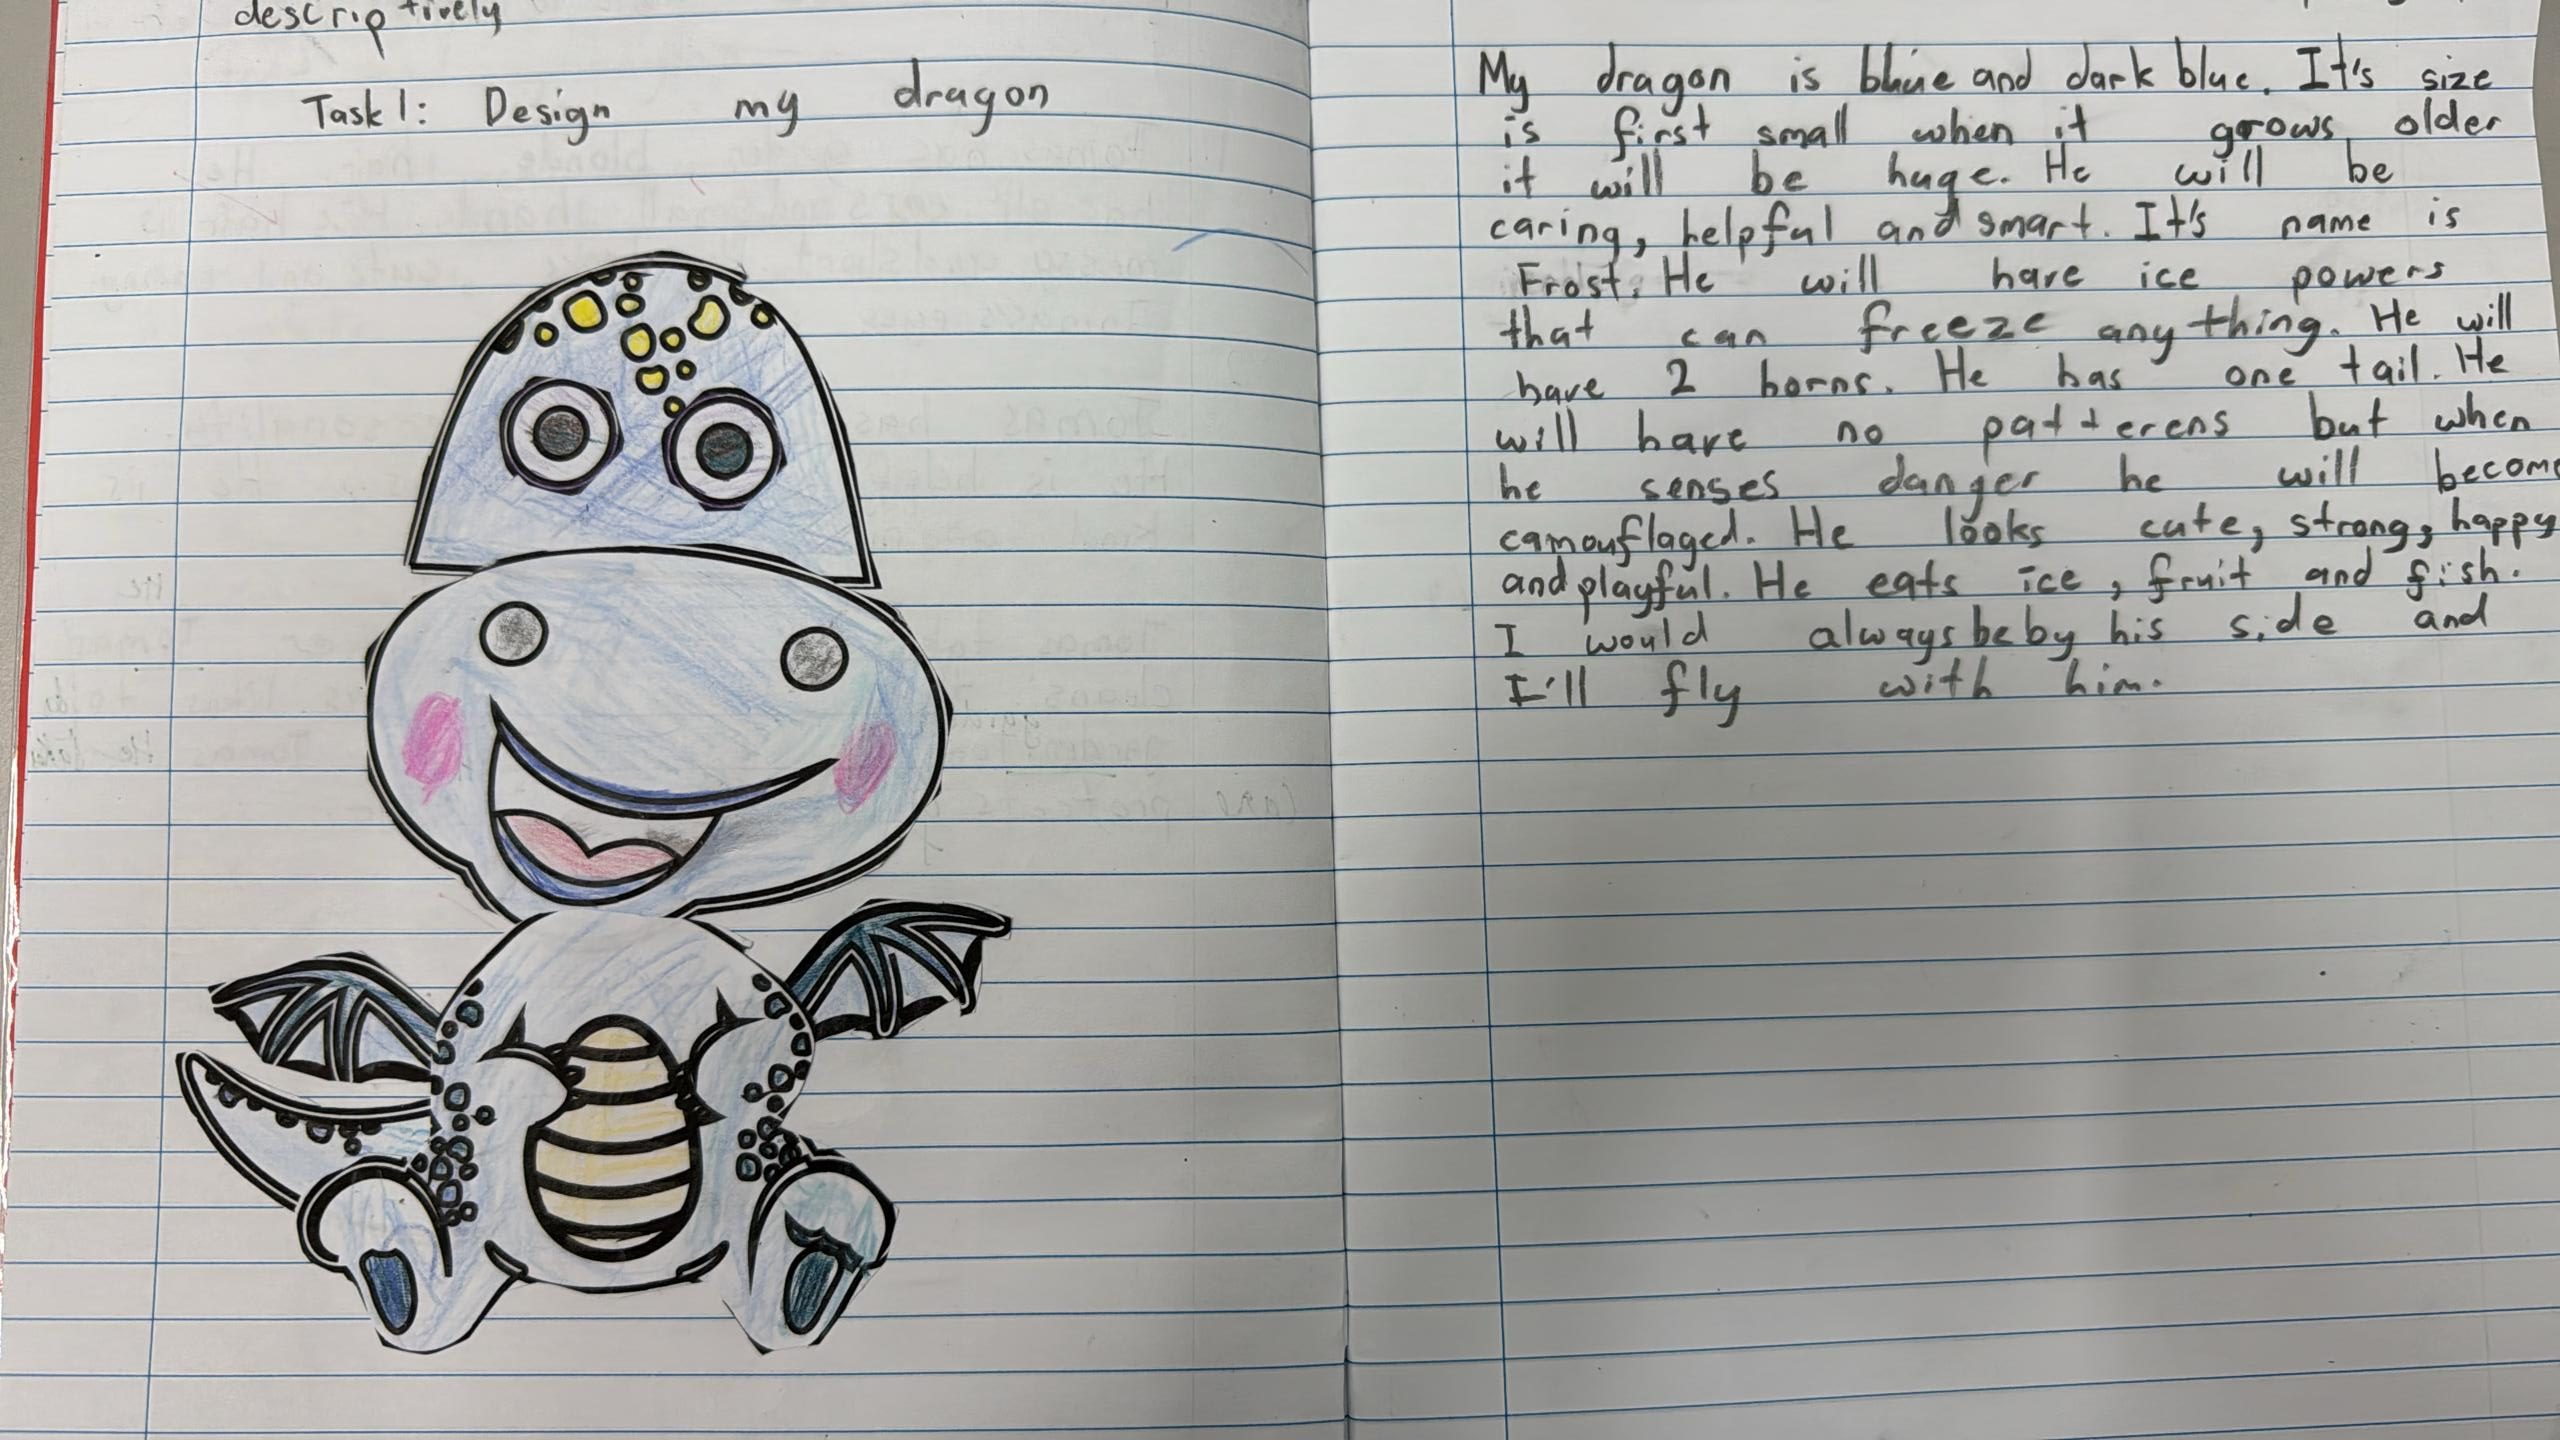 descriptively
Task 1: Design my dragon
My dragon is blue and dark blue. It's size
is first small when it grows older
it will be huge. He will be
caring, helpful and smart. It's name is
Frost. He will have ice powers
that can freeze anything. He will
have 2 horns. He has one tail. He
will have no patterens but when
he senses danger he will become
camouflaged. He looks cute, strong, happy
and playful. He eats ice, fruit and fish.
I would always be by his side and
I'll fly with him.